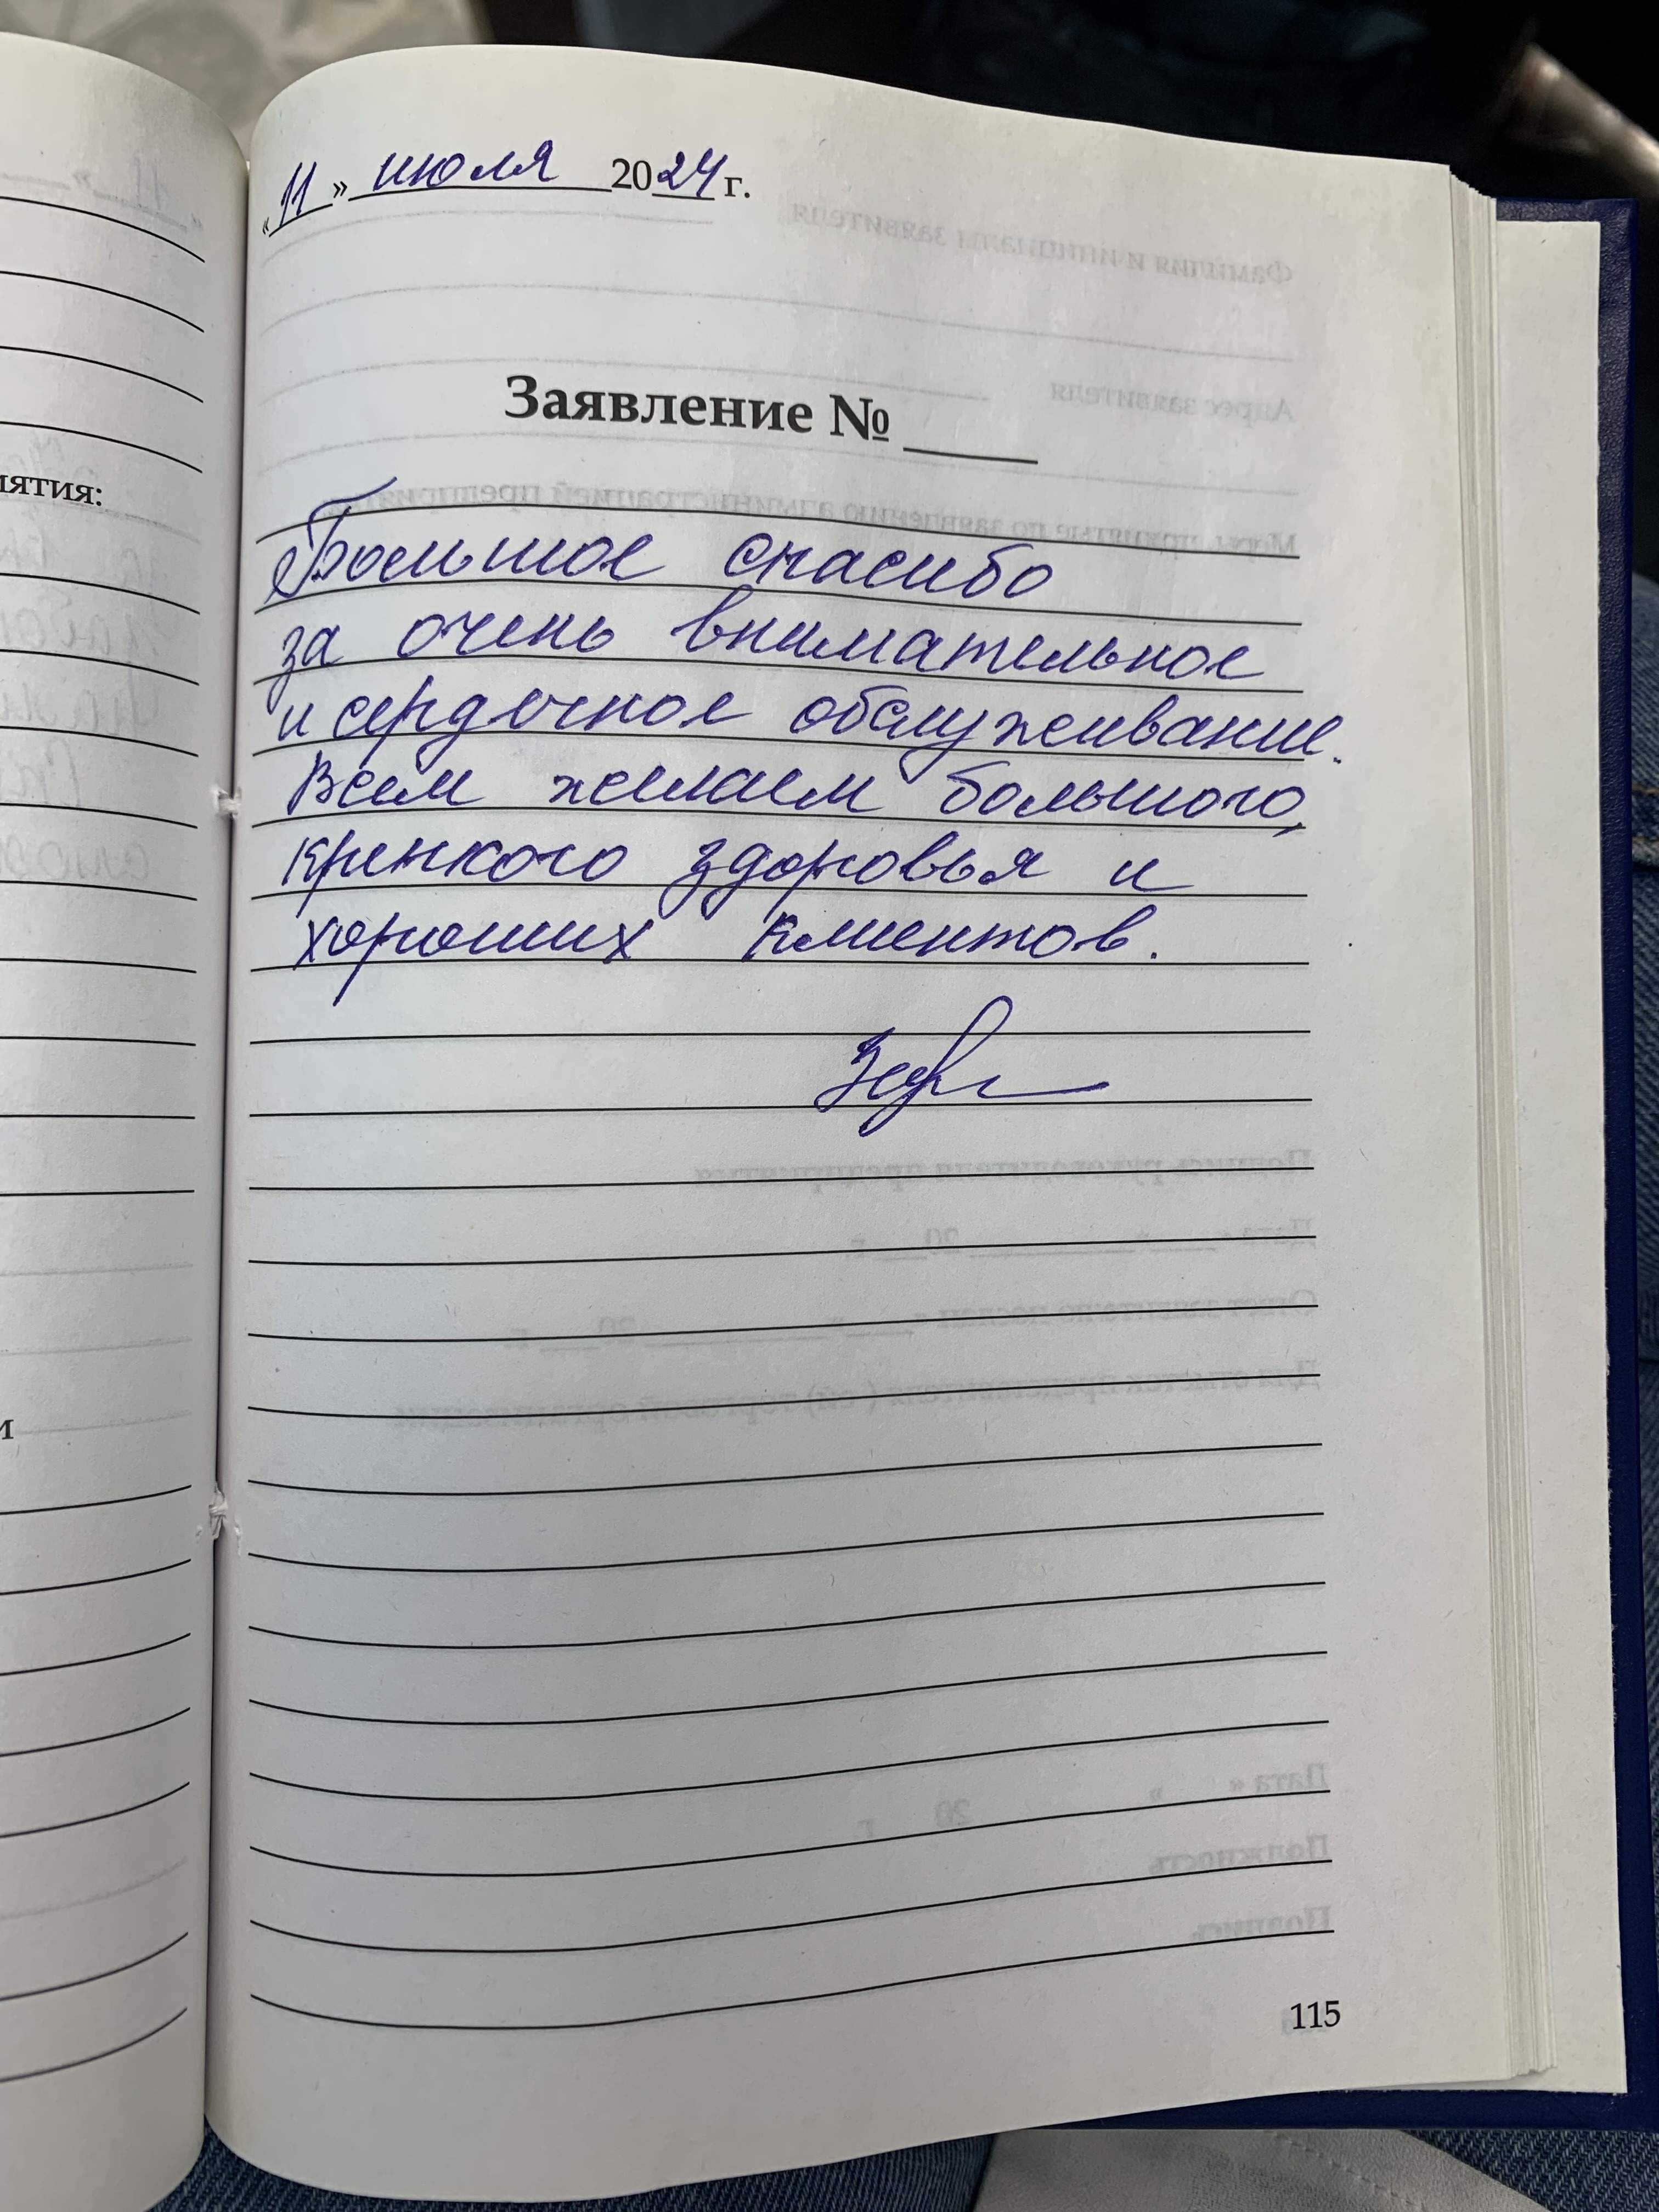 «11» июля 2024 г.
Заявление № ____
Большое спасибо
за очень внимательное
и сердечное обслуживание.
Всем желаем большого,
крепкого здоровья и
хороших клиентов.
115
иятия:
и